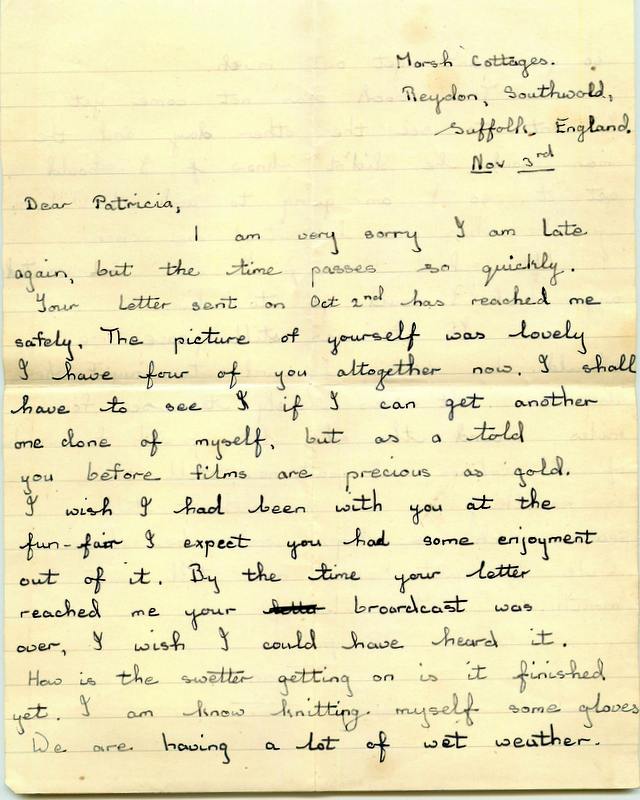 Marsh Cottages.
Reydon, Southwold,
Suffolk, England.
Nov 3rd
Dear Patricia,
I am very sorry I am late
again, but the time passes so quickly.
Your letter sent on Oct 2nd has reached me
safely. The picture of yourself was lovely
I have four of you altogether now. I shall
have to see if I can get another
one done of myself, but as a told
you before films are precious as gold.
I wish I had been with you at the
fun-fair I expect you had some enjoyment
out of it. By the time your letter
reached me your broardcast was
over, I wish I could have heard it.
How is the swetter getting on is it finished
yet. I am know knitting myself some gloves
We are having a lot of wet weather.